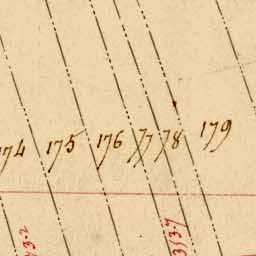 174 175 176 77 78 179
353-7